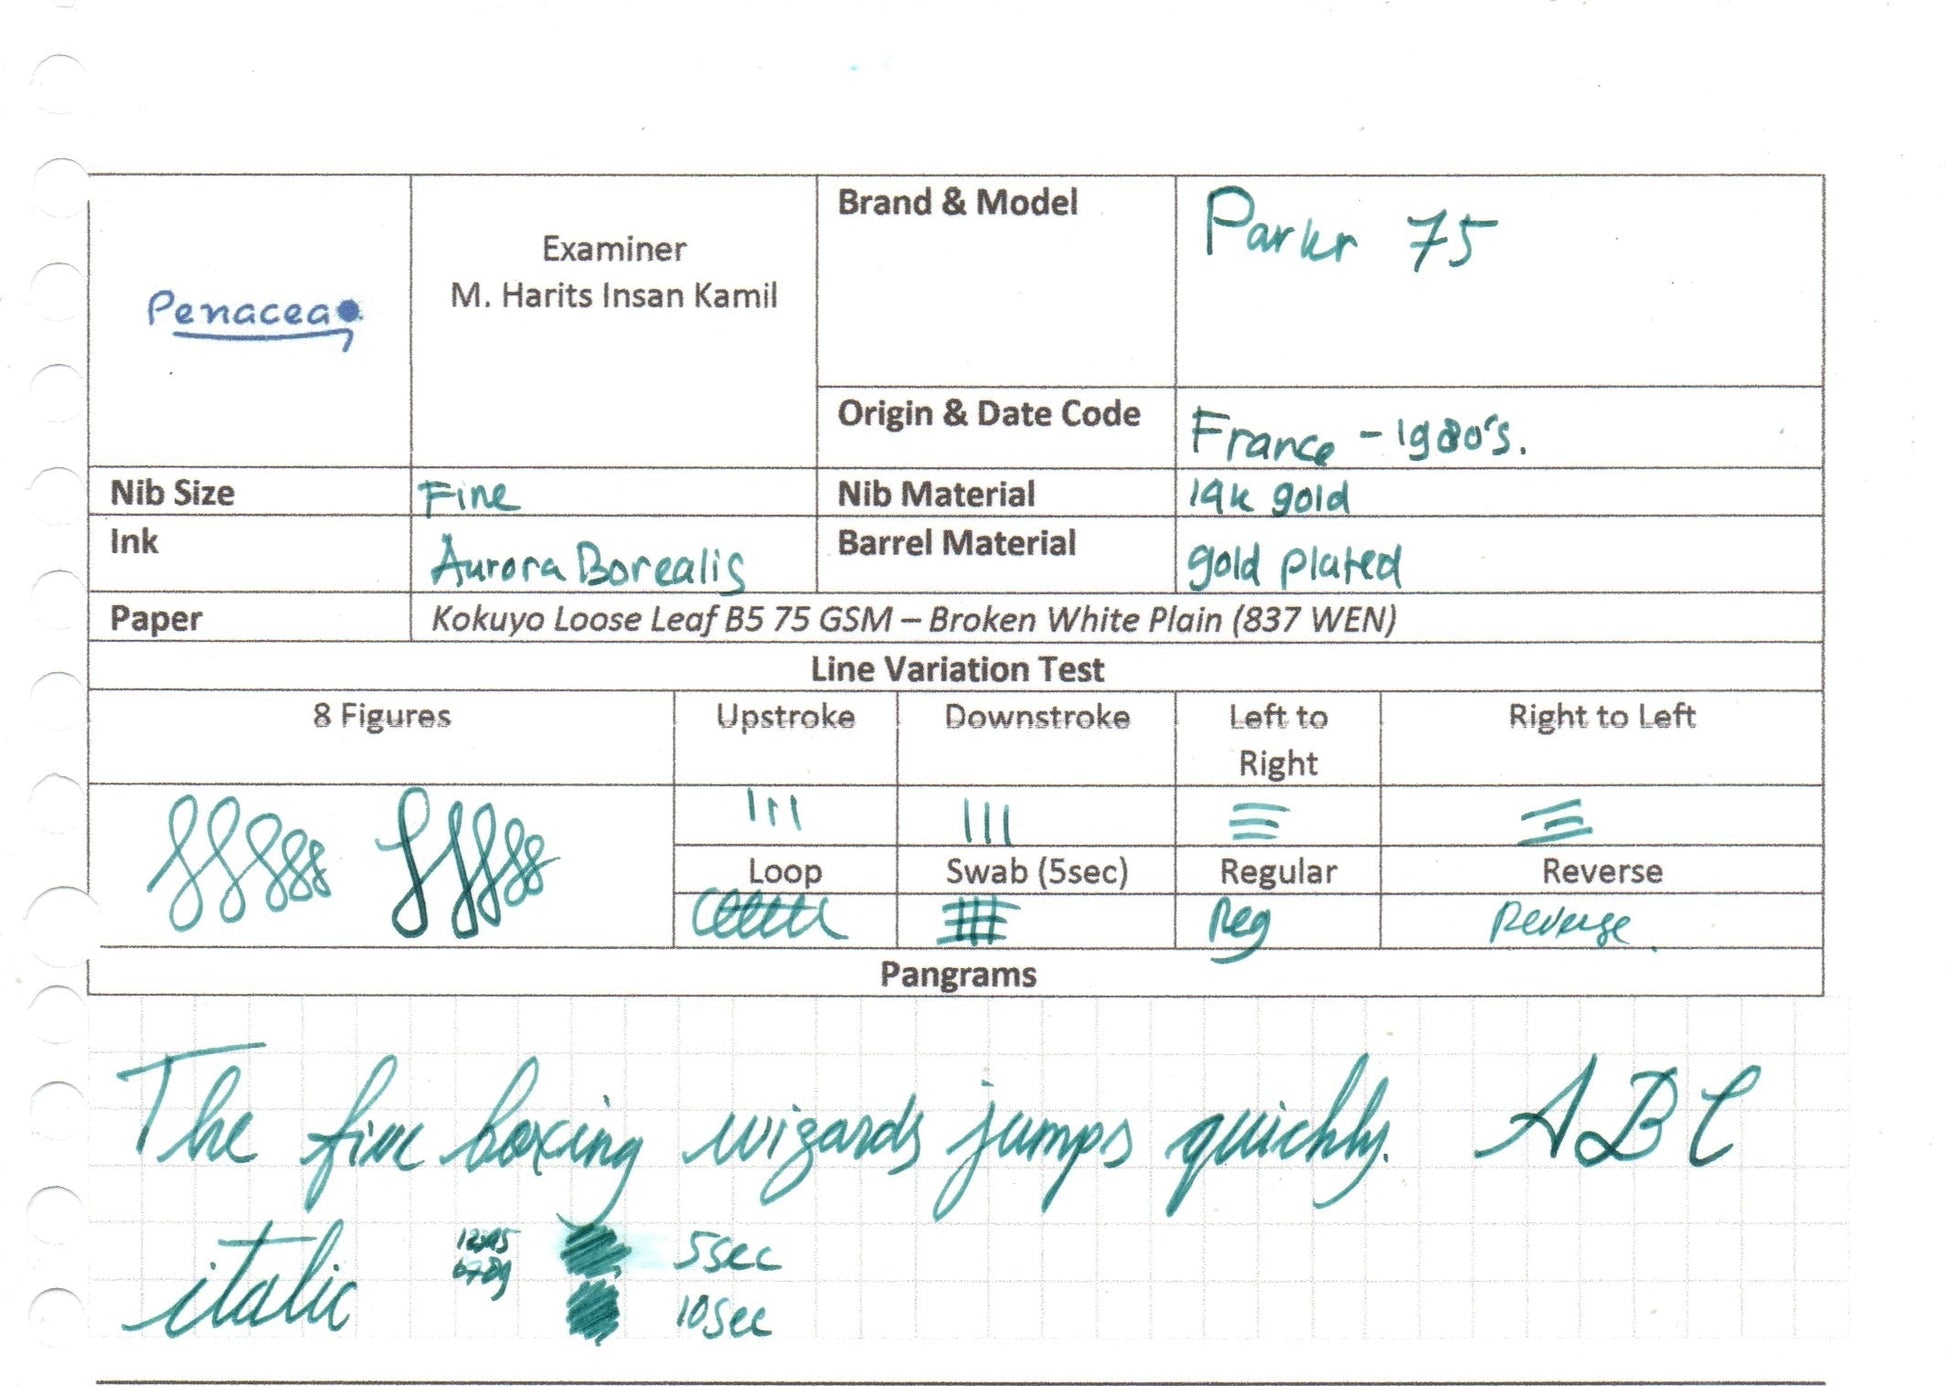 Penacea
Examiner
M. Harits Insan Kamil
Brand & Model
Parkr 75
Origin & Date Code
France - 1980's.
Nib Size
Fine
Nib Material
14k gold
Ink
Aurora Borealis
Barrel Material
gold plated
Paper
Kokuyo Loose Leaf B5 75 GSM – Broken White Plain (837 WEN)
Line Variation Test
8 Figures
Upstroke
Downstroke
Left to
Right
Right to Left
Loop
Swab (5sec)
Regular
Reverse
Reg
Reverse
Pangrams
The five boxing wizards jumps quickly. ABC
italic
12345
6789
5sec
10sec